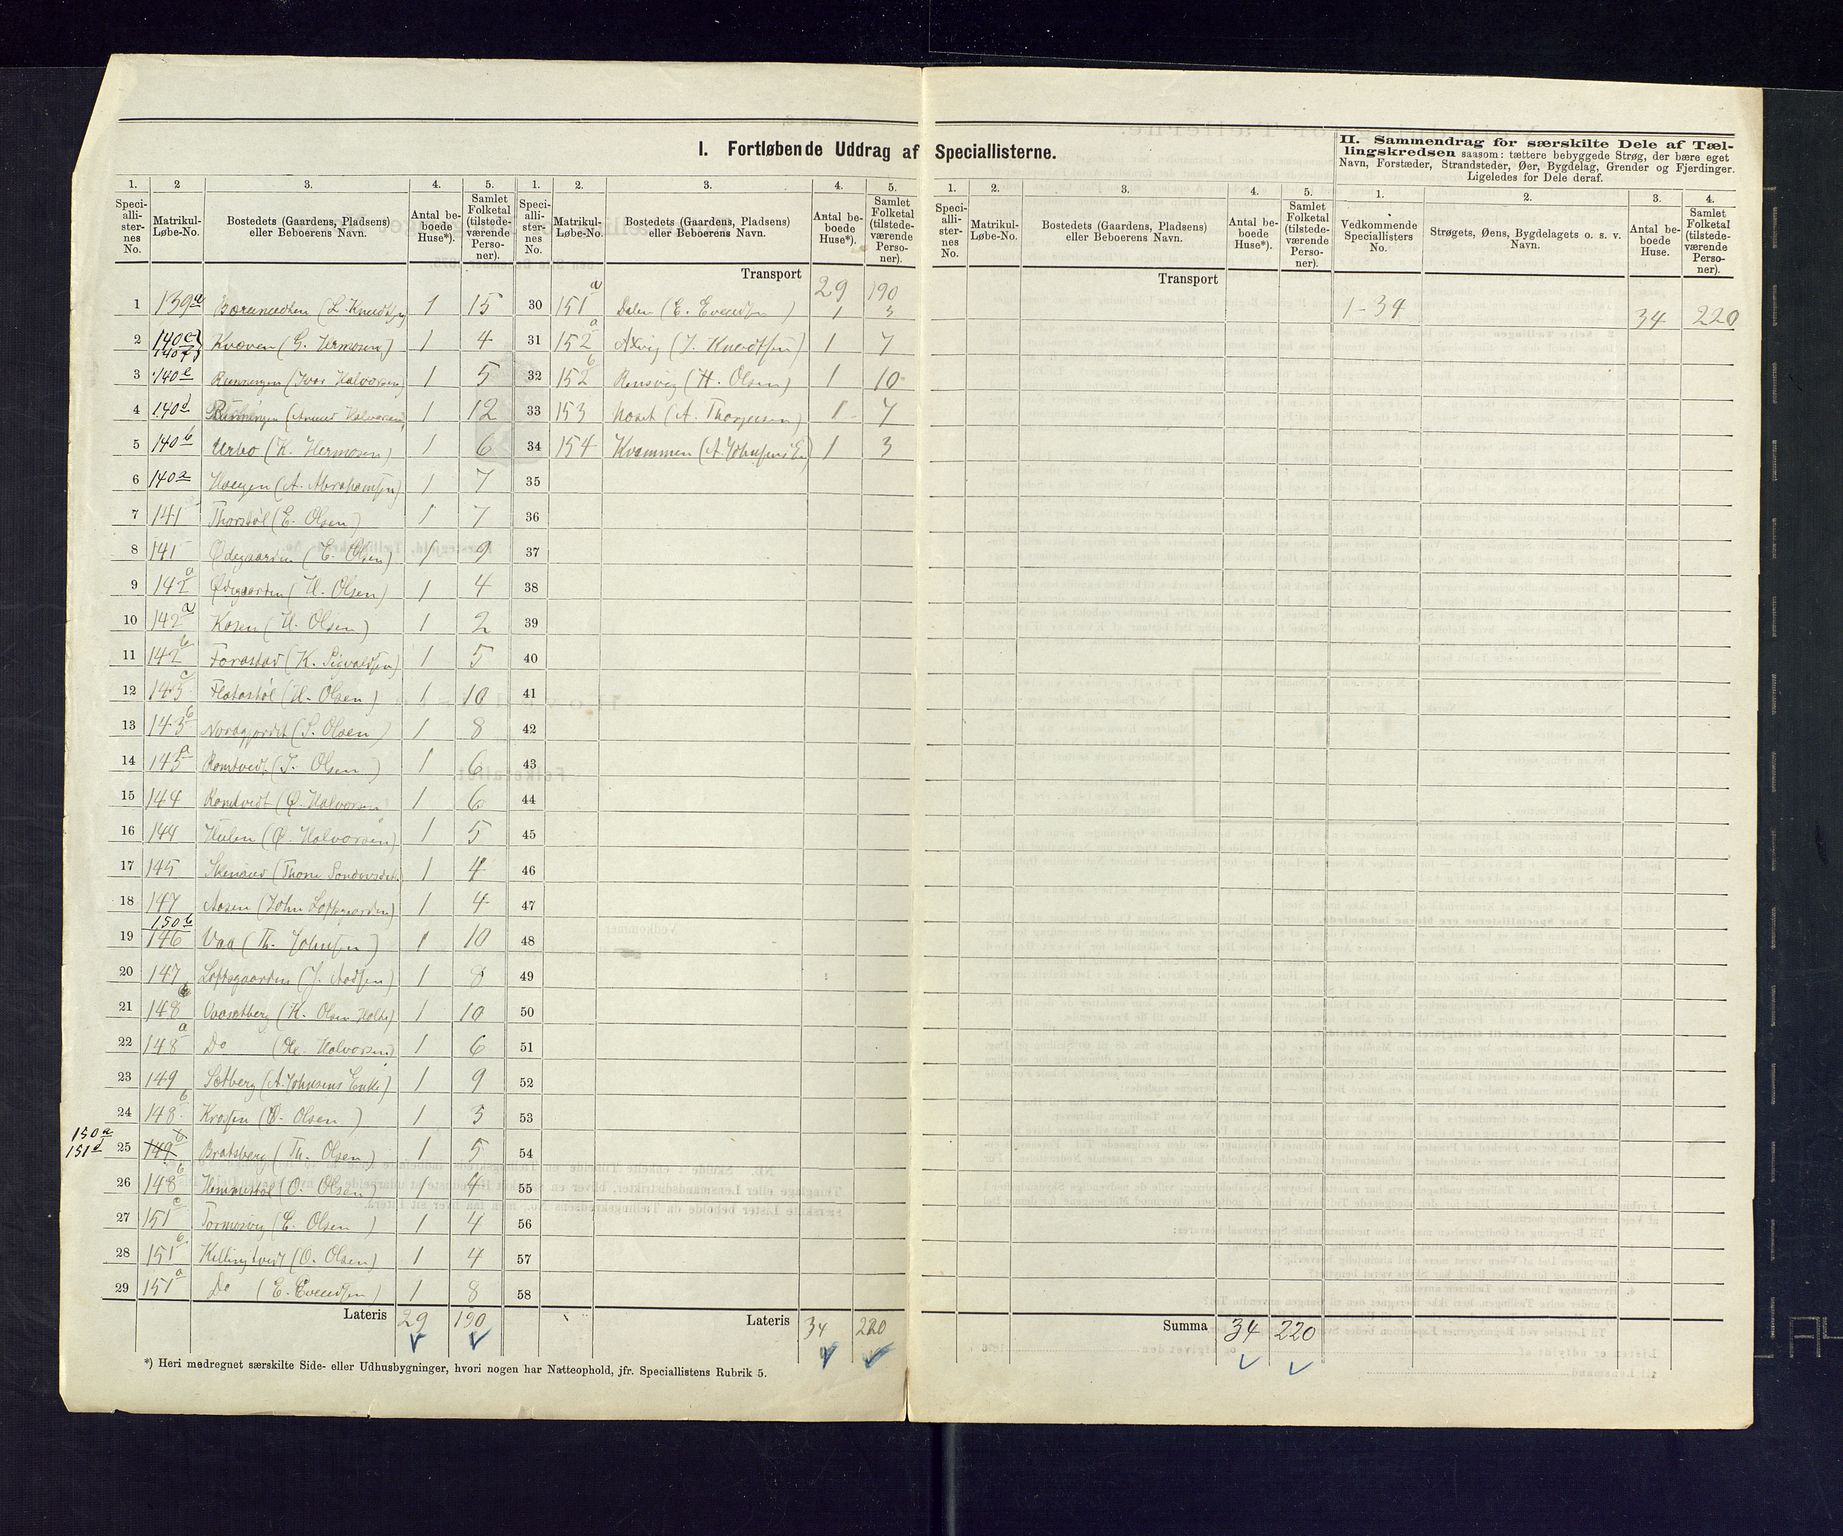 I. Fortløbende Uddrag af Speciallisterne.
II. Sammendrag for særskilte Dele af Tæl-
lingskredsen saasom: tættere bebyggede Strøg, der bære eget
Navn, Forstæder, Strandsteder, Øer, Bygdelag, Grender og Fjerdinger.
Ligeledes for Dele deraf.
1. 2 3. 4. 5. 1. 2. 3. 4. 5. 1. 2. 3. 4. 5. 1. 2. 3. 4.
Speci-alli-ster-nes No. Matrikul-Løbe-No. Bostedets (Gaardens, Pladsens) eller Beboerens Navn. Antal be-boede Huse*). Samlet Folketal (tilstede-værende Perso-ner).
Speci-alli-ster-nes No. Matrikul-Løbe-No. Bostedets (Gaardens, Pladsens) eller Beboerens Navn. Antal be-boede Huse*). Samlet Folketal (tilstede-værende Perso-ner).
Speci-alli-ster-nes No. Matrikul-Løbe-No. Bostedets (Gaardens, Pladsens) eller Beboerens Navn. Antal be-boede Huse*). Samlet Folketal (tilstede-værende Perso-ner).
Vedkommende Speciallisters No. Strøgets, Øens, Bygdelagets o. s. v. Navn. Antal be-boede Huse. Samlet Folketal (tilstede-værende Perso-ner).
1 139a (L. Knudtsen) 1 15
2 140c 140f Kvæven (G. Hermosen) 1 4
3 140e Runningen (Ivar Halvorsen) 1 5
4 140d Runningen (Amund Halvorsen) 1 12
5 140b Urbo (K. Hermosen) 1 6
6 140a Haugen (A. Abrahamsen) 1 7
7 141 Thorstøl (E. Olsen) 1 7
8 141 Ødegaarden (E. Olsen) 1 9
9 142a Ødegaarden (H. Olsen) 1 4
10 142a Kosen (H. Olsen) 1 2
11 142b Forastad (K. Sigvaldsen) 1 5
12 143c Flatastøl (H. Olsen) 1 10
13 143b Nordgjordet (S. Olsen) 1 8
14 143a Romtvedt (J. Olsen) 1 6
15 144 Romtvedt (Ø. Halvorsen 1 6
16 144 Hulen (Ø. Halvorsen) 1 5
17 145 (Thone 1 4
18 147 Aasen (John Loftsgaarden) 1 4
19 150b 146 Vaa (Th. Johnsen) 1 10
20 147 Loftsgaarden (J. Aadsen) 1 8
21 148b (K. Olsen Holte) 1 10
22 148a Do ( Halvorsen) 1 6
23 149 Sætberg (A. Johnsens Enke) 1 9
24 148b Krossen (O. Olsen) 1 3
150a
151d 25 149b Bratsberg (Th. Olsen) 1 5
26 148b Hommestøl (O. Olsen) 1 4
27 151c Tormosvig (E. Olsen) 1 4
28 151b Killingtvedt (O. Olsen) 1 4
29 151a Do (E. Evendsen) 1 8
Lateris 29 190
Transport 29 190
30 151a Dalen (E. Evendsen) 1 3
31 152a Axvig (J. Knudtsen) 1 7
32 152b Rensvig (H. Olsen) 1 10
33 153 Noset (A. Thorgersen) 1 7
34 154 Kvammen (A. Johnsens E.) 1 3
35
36
37
38
39
40
41
42
43
44
45
46
47
48
49
50
51
52
53
54
55
56
57
58
Lateris 34 220
Transport
Summa 34 220
1-34 34 220
*) Heri medregnet særskilte Side- eller Udhusbygninger, hvori nogen har Natteophold, jfr. Speciallistens Rubrik 5.